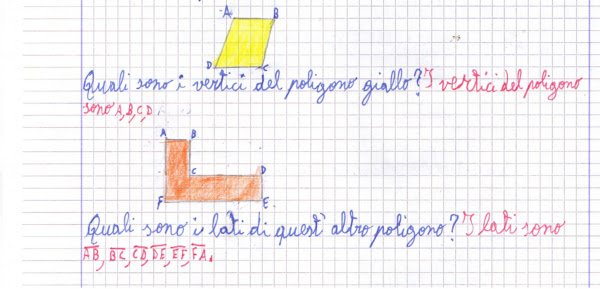 A B
D C
Quali sono i vertici del poligono giallo? I vertici del poligono
sono A, B, C, D.
A B
C D
F E
Quali sono i lati di quest'altro poligono? I lati sono
A̅B̅, B̅C̅, C̅D̅, D̅E̅, E̅F̅, F̅A̅.